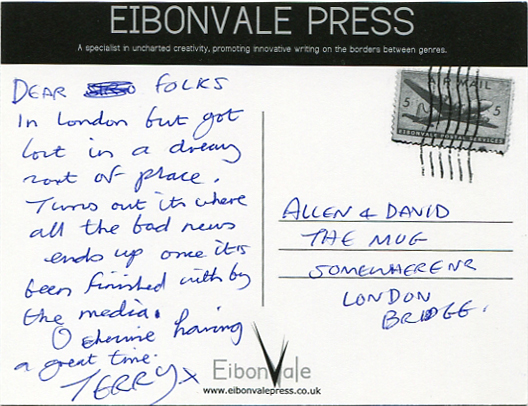 EIBONVALE PRESS
A specialist in uncharted creativity, promoting innovative writing on the borders between genres.
DEAR FOLKS
In London but got
lost in a dreamy
sort of place.
Turns out its where
all the bad news
ends up once it's
been finished with by
the media.
Otherwise having
a great time.
TERRY x
AIR MAIL
5 5
EIBONVALE POSTAL SERVICES
ALLEN & DAVID
THE MUG
SOMEWHERE NR
LONDON
BRIDGE.
EibonVale
www.eibonvalepress.co.uk